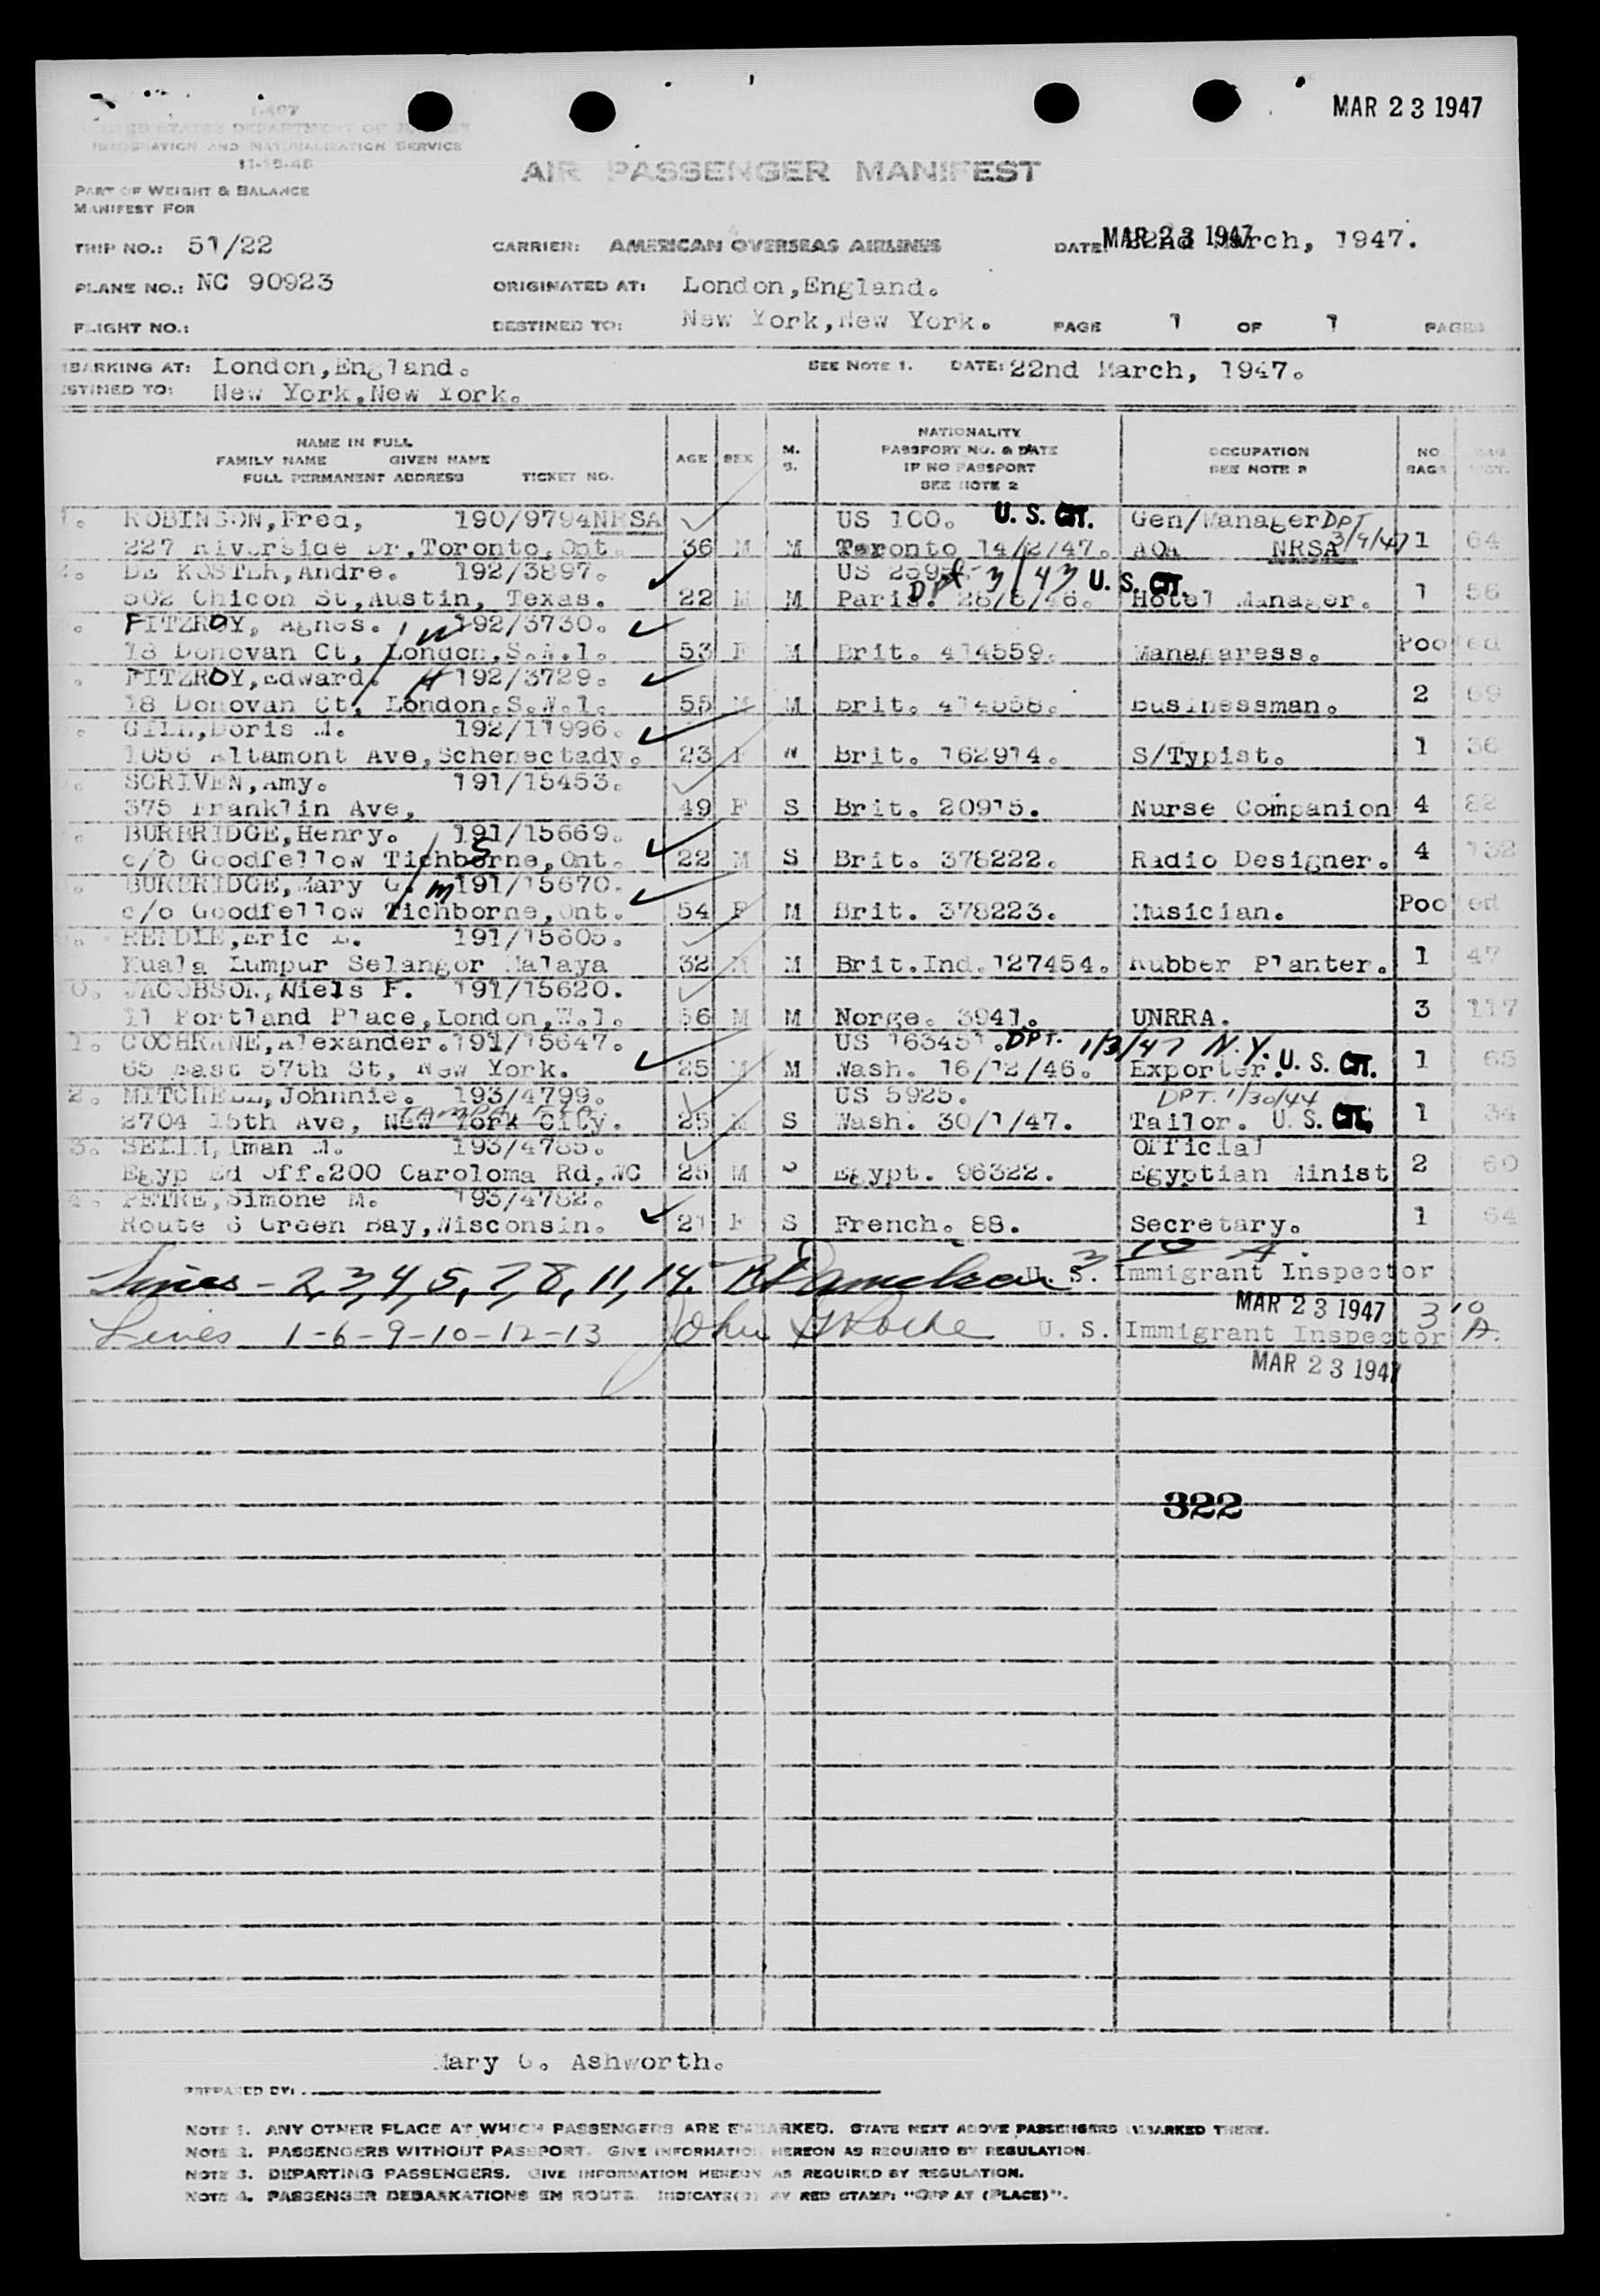 MAR 23 1947
I-467
UNITED STATES DEPARTMENT OF JUSTICE
IMMIGRATION AND NATURALIZATION SERVICE
11-15-45
AIR PASSENGER MANIFEST
PART OF WEIGHT & BALANCE
MANIFEST FOR
TRIP NO.: 51/22 CARRIER: AMERICAN OVERSEAS AIRLINES DATE: MAR 23 1947 22nd March, 1947.
PLANE NO.: NC 90923 ORIGINATED AT: London,England.
FLIGHT NO.: DESTINED TO: New York,New York. PAGE 1 OF 1 PAGES
BARKING AT: London,England. SEE NOTE 1. DATE: 22nd March, 1947.
STINED TO: New York,New York.
NAME IN FULL
FAMILY NAME GIVEN NAME
FULL PERMANENT ADDRESS TICKET NO.
AGE SEX M. S.
NATIONALITY
PASSPORT NO. & DATE
IF NO PASSPORT
SEE NOTE 2
OCCUPATION
SEE NOTE 2
NO BAGS BAG WGT.
1. ROBINSON,Fred, 190/9794NRSA US 100. U. S. CIT. Gen/Manager DPT
227 Riverside Dr,Toronto,Ont. 36 M M Toronto 14/2/47. AOA NRSA 3/9/47 1 64
2. DE KOSTER,Andre. 192/3897. US 2595 DPT 3/43 U. S. CIT.
502 Chicon St,Austin, Texas. 22 M M Paris. 28/6/46. Hotel Manager. 1 56
. FITZROY, Agnes. W 192/3730.
18 Donovan Ct, London,S.W.1. 53 F M Brit. 414559. Manageress. Pooled
. FITZROY,Edward. H 192/3729.
18 Donovan Ct, London.S.W.1. 55 M M Brit. 414558. Businessman. 2 69
. GILL,Doris M. 192/11996.
1056 Altamont Ave,Schenectady. 23 F W Brit. 162914. S/Typist. 1 36
. SCRIVEN,Amy. 191/15453.
375 Franklin Ave, 49 F S Brit. 20915. Nurse Companion 4 82
. BURBRIDGE,Henry. S 191/15669.
c/o Goodfellow Tichborne,Ont. 22 M S Brit. 378222. Radio Designer. 4 132
. BURBRIDGE,Mary G. M 191/15670.
c/o Goodfellow Tichborne,Ont. 54 F M Brit. 378223. Musician. Pooled
. RENDLE,Eric L. 191/15605.
Kuala Lumpur Selangor Malaya 32 M M Brit.Ind.127454. Rubber Planter. 1 47
0. JACOBSON,Niels F. 191/15620.
11 Portland Place,London,W.1. 56 M M Norge. 3941. UNRRA. 3 117
1. COCHRANE,Alexander.191/15647. US 163451. DPT. 1/3/47 N.Y.
65 East 57th St, New York. 25 M M Wash. 16/12/46. Exporter. U. S. CIT. 1 65
2. MITCHELL,Johnnie. 193/4799. US 5925. DPT. 1/30/44
2704 15th Ave, New York City. TAMPA FLA 25 M S Wash. 30/1/47. Tailor. U. S. CIT. 1 34
3. SELIM,Iman M. 193/4785. Official
Egyp Ed Off.200 Caroloma Rd,NC 25 M S Egypt. 96322. Egyptian Minist 2 60
4. PETRE,Simone M. 193/4782.
Route 6 Green Bay,Wisconsin. 21 F S French. 88. Secretary. 1 64
3 10 A.
Lines - 2,3,4,5,7,8,11,14. U. S. Immigrant Inspector
MAR 23 1947
Lines 1-6-9-10-12-13 John U. S. Immigrant Inspector 3 10 A.
MAR 23 1947
322
Mary G. Ashworth.
PREPARED BY:
NOTE 1. ANY OTHER PLACE AT WHICH PASSENGERS ARE EMBARKED. STATE NEXT ABOVE PASSENGERS EMBARKED THERE.
NOTE 2. PASSENGERS WITHOUT PASSPORT. GIVE INFORMATION HEREON AS REQUIRED BY REGULATION.
NOTE 3. DEPARTING PASSENGERS. GIVE INFORMATION HEREON AS REQUIRED BY REGULATION.
NOTE 4. PASSENGER DEBARKATIONS EN ROUTE. INDICATE(D) BY RED STAMP: "OFF AT (PLACE)".